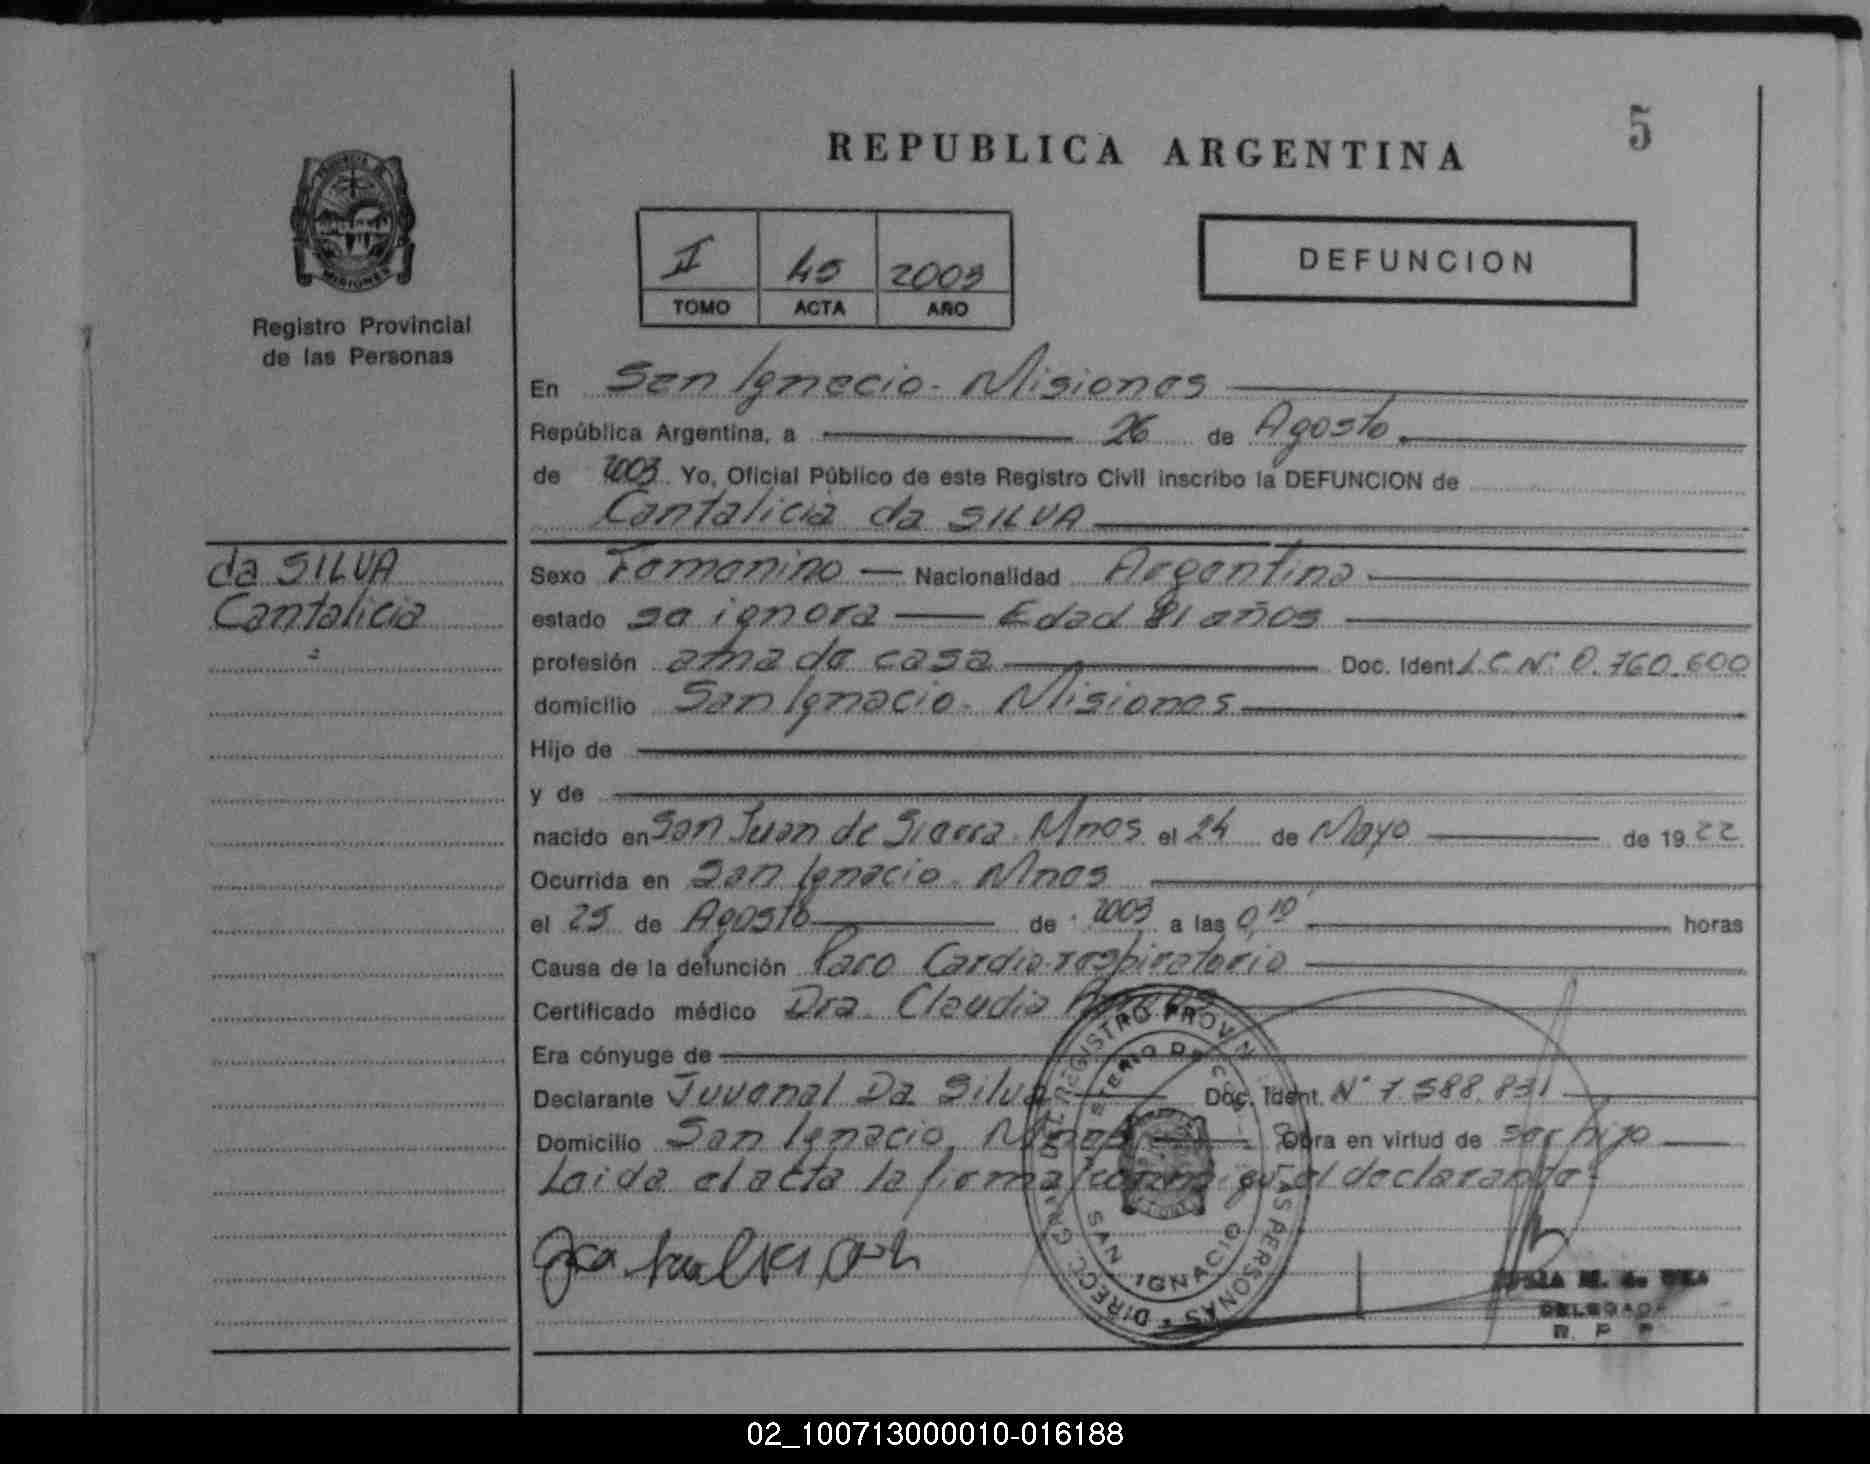 5
REPUBLICA ARGENTINA
PROVINCIA
MISIONES
Registro Provincial
de las Personas
II 45 2003
TOMO ACTA AÑO
DEFUNCION
En San Ignacio - Misiones
República Argentina, a 26 de Agosto
de 2003 Yo, Oficial Público de este Registro Civil inscribo la DEFUNCION de
Cantalicia da SILVA
da SILVA
Cantalicia
Sexo Femenino Nacionalidad Argentina
estado se ignora Edad 81 años
profesión ama de casa Doc. Ident L.C.Nº 0.760.600
domicilio San Ignacio - Misiones
Hijo de
y de
nacido en San Juan de Sierra - Mnes el 24 de Mayo de 1922
Ocurrida en San Ignacio - Mnes
el 25 de Agosto de 2003 a las 0,10 horas
Causa de la defunción Paro Cardio-respiratorio
Certificado médico Dra. Claudia
Era cónyuge de
Declarante Juvenal Da Silva Doc. Ident. Nº 7.588.831
Domicilio San Ignacio, Mnes Obra en virtud de ser hijo
Leida el acta la firma conmigo el declarante
DIRECC. GRAL. DEL REGISTRO PROVIN DE LAS PERSONAS
SAN IGNACIO
DELEGADA
R. P. P.
02_100713000010-016188